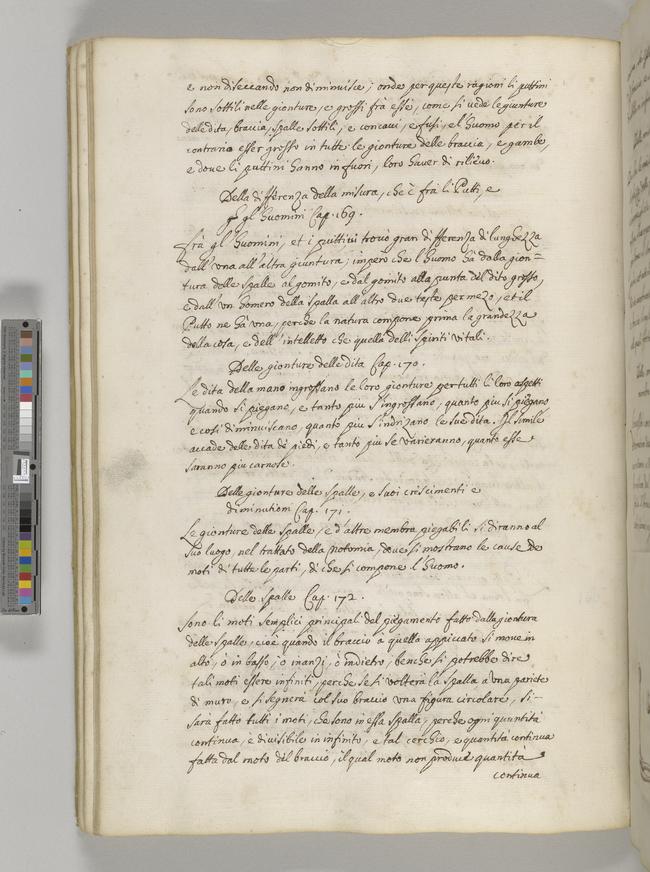 e non diseccando non diminuisce; onde per queste ragioni li puttini
sono sottili nelle gionture, e grossi frà esse, come si vede le gionture
delle dita, braccia, spalle sottili, e concavi, e fusi, e l'huomo per il
contrario esser grosso in tutte le gionture delle braccia, e gambe,
e dove li puttini hanno in fuori, loro haver di rilievo.
Della differenza della misura, che è frà li Putti, e
gl' huomini Cap. 169.
Frà gl' huomini, et i puttini trovo gran differenza di lunghezza
dall' una all' altra giuntura; impero che l'huomo hà dalla gion=
tura delle spalle al gomito, e dal gomito alla punta del dito grosso,
e dall' un homero della spalla all' altro due teste per mezo, et il
Putto ne hà una, perche la natura compone prima la grandezza
della cosa, e dell' intelletto che quella delli spiriti vitali.
Delle gionture delle dita Cap. 170.
Le dita della mano ingrossano le loro gionture per tutti li loro aspetti
quando si piegano, e tanto più s'ingrossano, quanto più si piegano
e così diminuiscano, quanto più s'indrizano le sue dita. Il simile
accade delle dita de piedi, e tanto più se varieranno, quanto esse
saranno più carnose.
Delle gionture delle spalle, e suoi crescimenti e
diminutioni Cap. 171.
Le gionture delle spalle, e d'altre membra piegabili si diranno al
suo luogo, nel trattato della Notomia, dove si mostrano le cause de
moti di tutte le parti, di che si compone l'huomo.
Delle spalle Cap. 172.
Sono li moti semplici principali del piegamento fatto dalla giontura
delle spalle, cioè quando il braccio a quella appiccato si move in
alto, ò in basso, ò inanzi, ò indietro, benche si potrebbe dire
tali moti essere infiniti, perche se si volterà la spalla à una pariete
di muro, e si segnerà col suo braccio una figura circolare, si-
sarà fatto tutti i moti, che sono in essa spalla, perche ogni quantità
continua, è divisibile in infinito, e tal cerchio, è quantità continua
fatta dal moto del braccio, il qual moto non produce quantità
continua